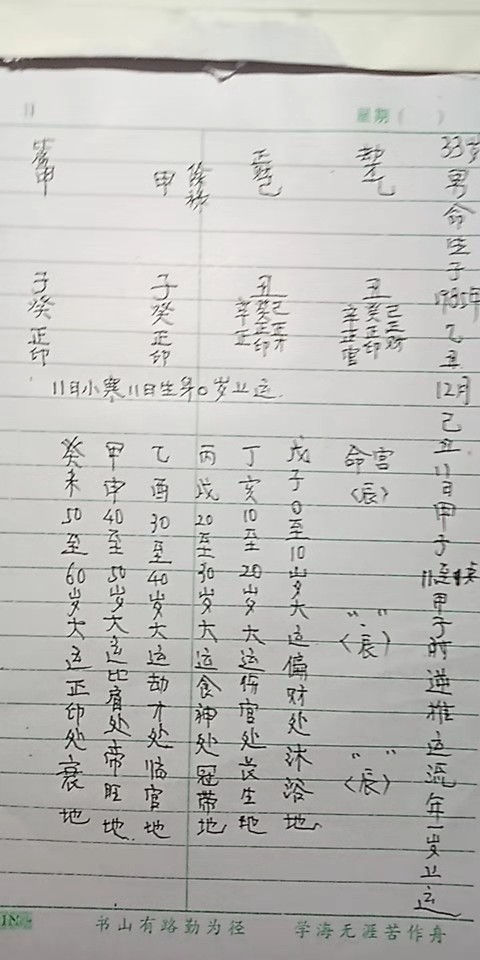 星期（ ）
33岁男命生于1985年乙丑12月己丑11日甲子11至1点甲子时逆推运流年一岁上运
劫才乙
正财己
徐祿
甲
甲
丑
己正财
癸正印
辛正官
丑
己正才
癸正印
辛正
子癸正印
子癸正印
11日小寒11日生年0岁上运.
命宫〈辰〉
"."〈辰〉
" "〈辰〉
戊子0至10岁大运偏财处沐浴地
丁亥10至20岁大运伤官处长生地
丙戌20至30岁大运食神处冠带地
乙酉30至40岁大运劫才处临官地
甲申40至50岁大运比肩处帝旺地.
癸未50至60岁大运正印处衰地
书山有路勤为径 学海无涯苦作舟